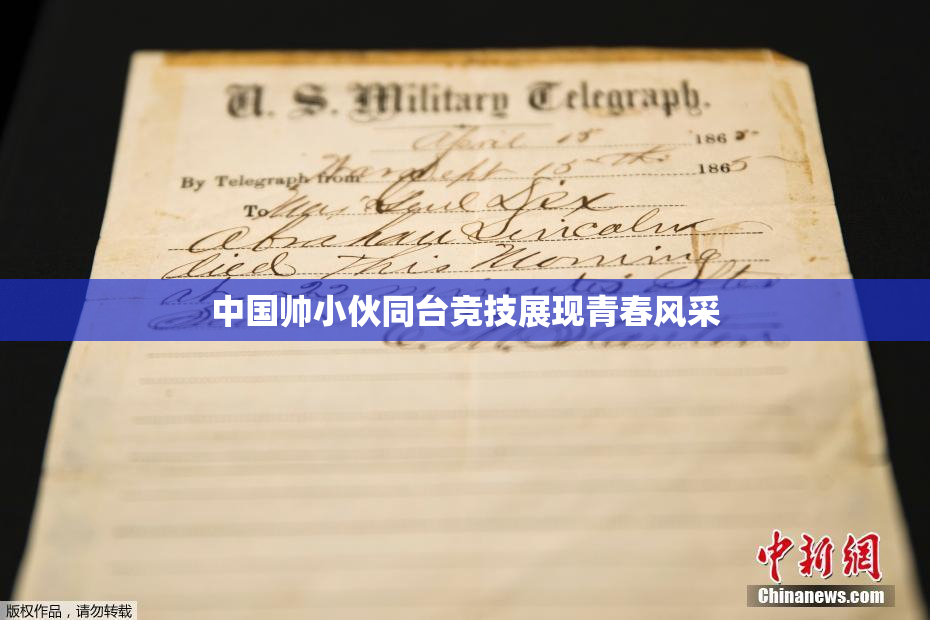 U. S. Military Telegraph.
April 15 1865
By Telegraph from War Dept 15th 1865
To Maj Genl Dix
Abraham Lincoln
died This Morning
at 22 minutes after
中国帅小伙同台竞技展现青春风采
E. M. Stanton
中新網
Chinanews.com
版权作品,请勿转载